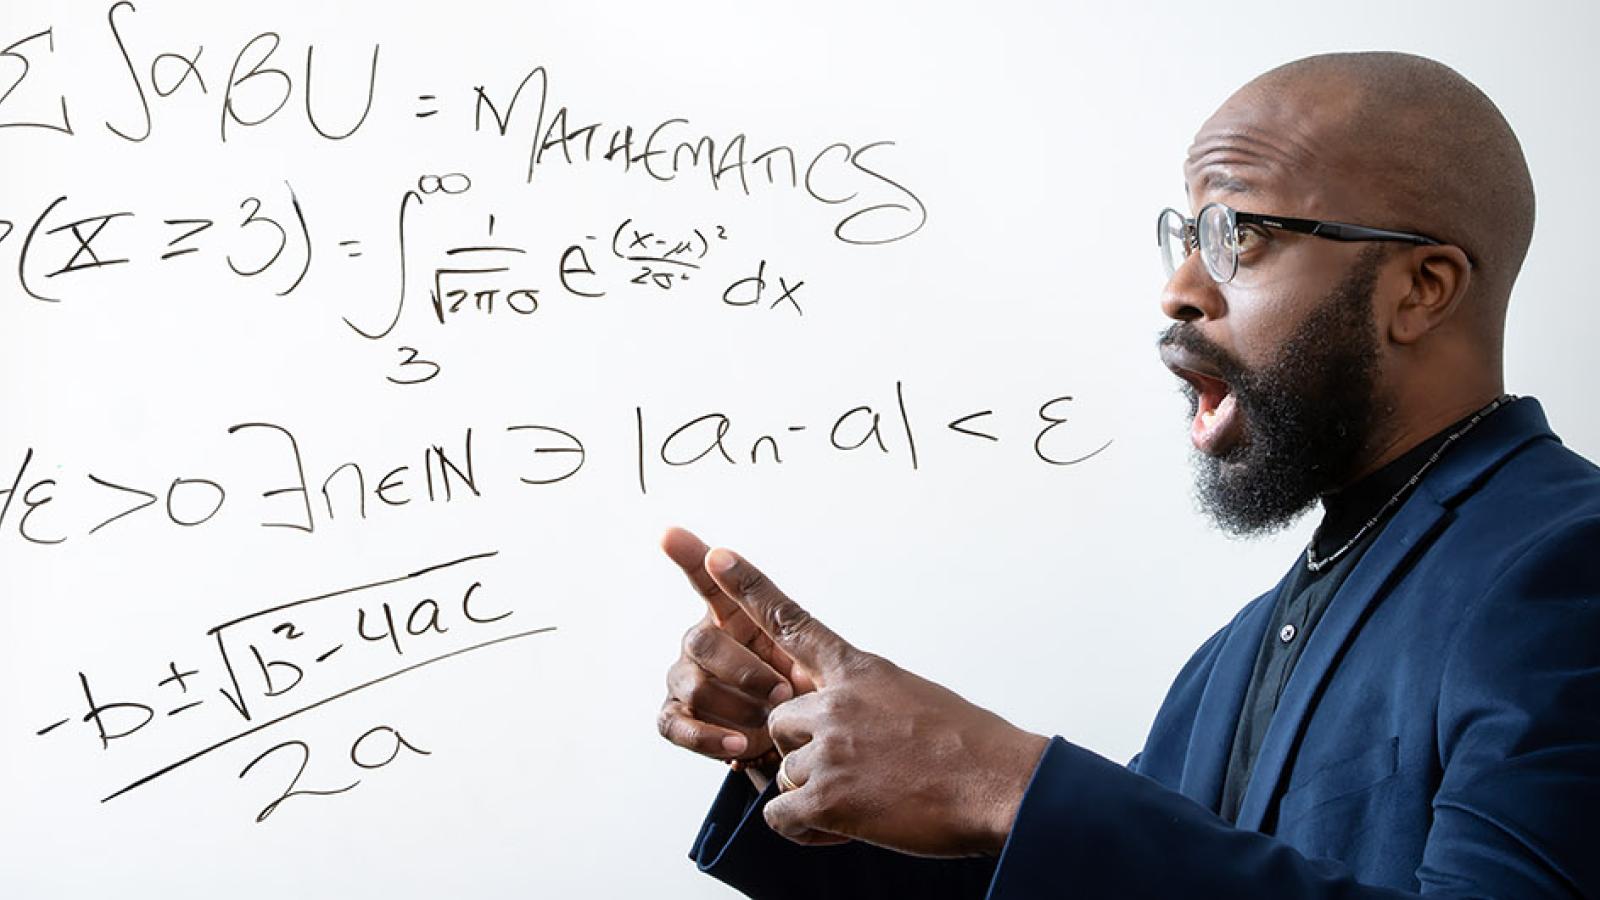 Σ ∫ α β U = MATHEMATICS
P(X ≥ 3) = ∫₃^∞ 1/√(2πσ) e^(-(x-μ)²/2σ²) dx
∀ε > 0 ∃n ∈ ℕ ∋ |aₙ - a| < ε
(-b ± √(b² - 4ac))/2a